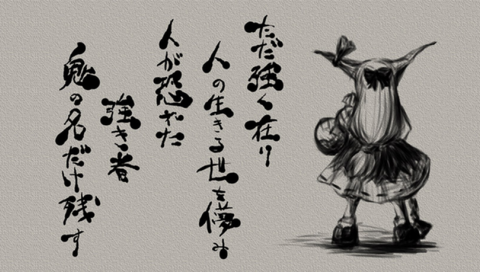 ただ強く在り
人の生きる世を儚み
人が恐れた
強き者
鬼の名だけ残す